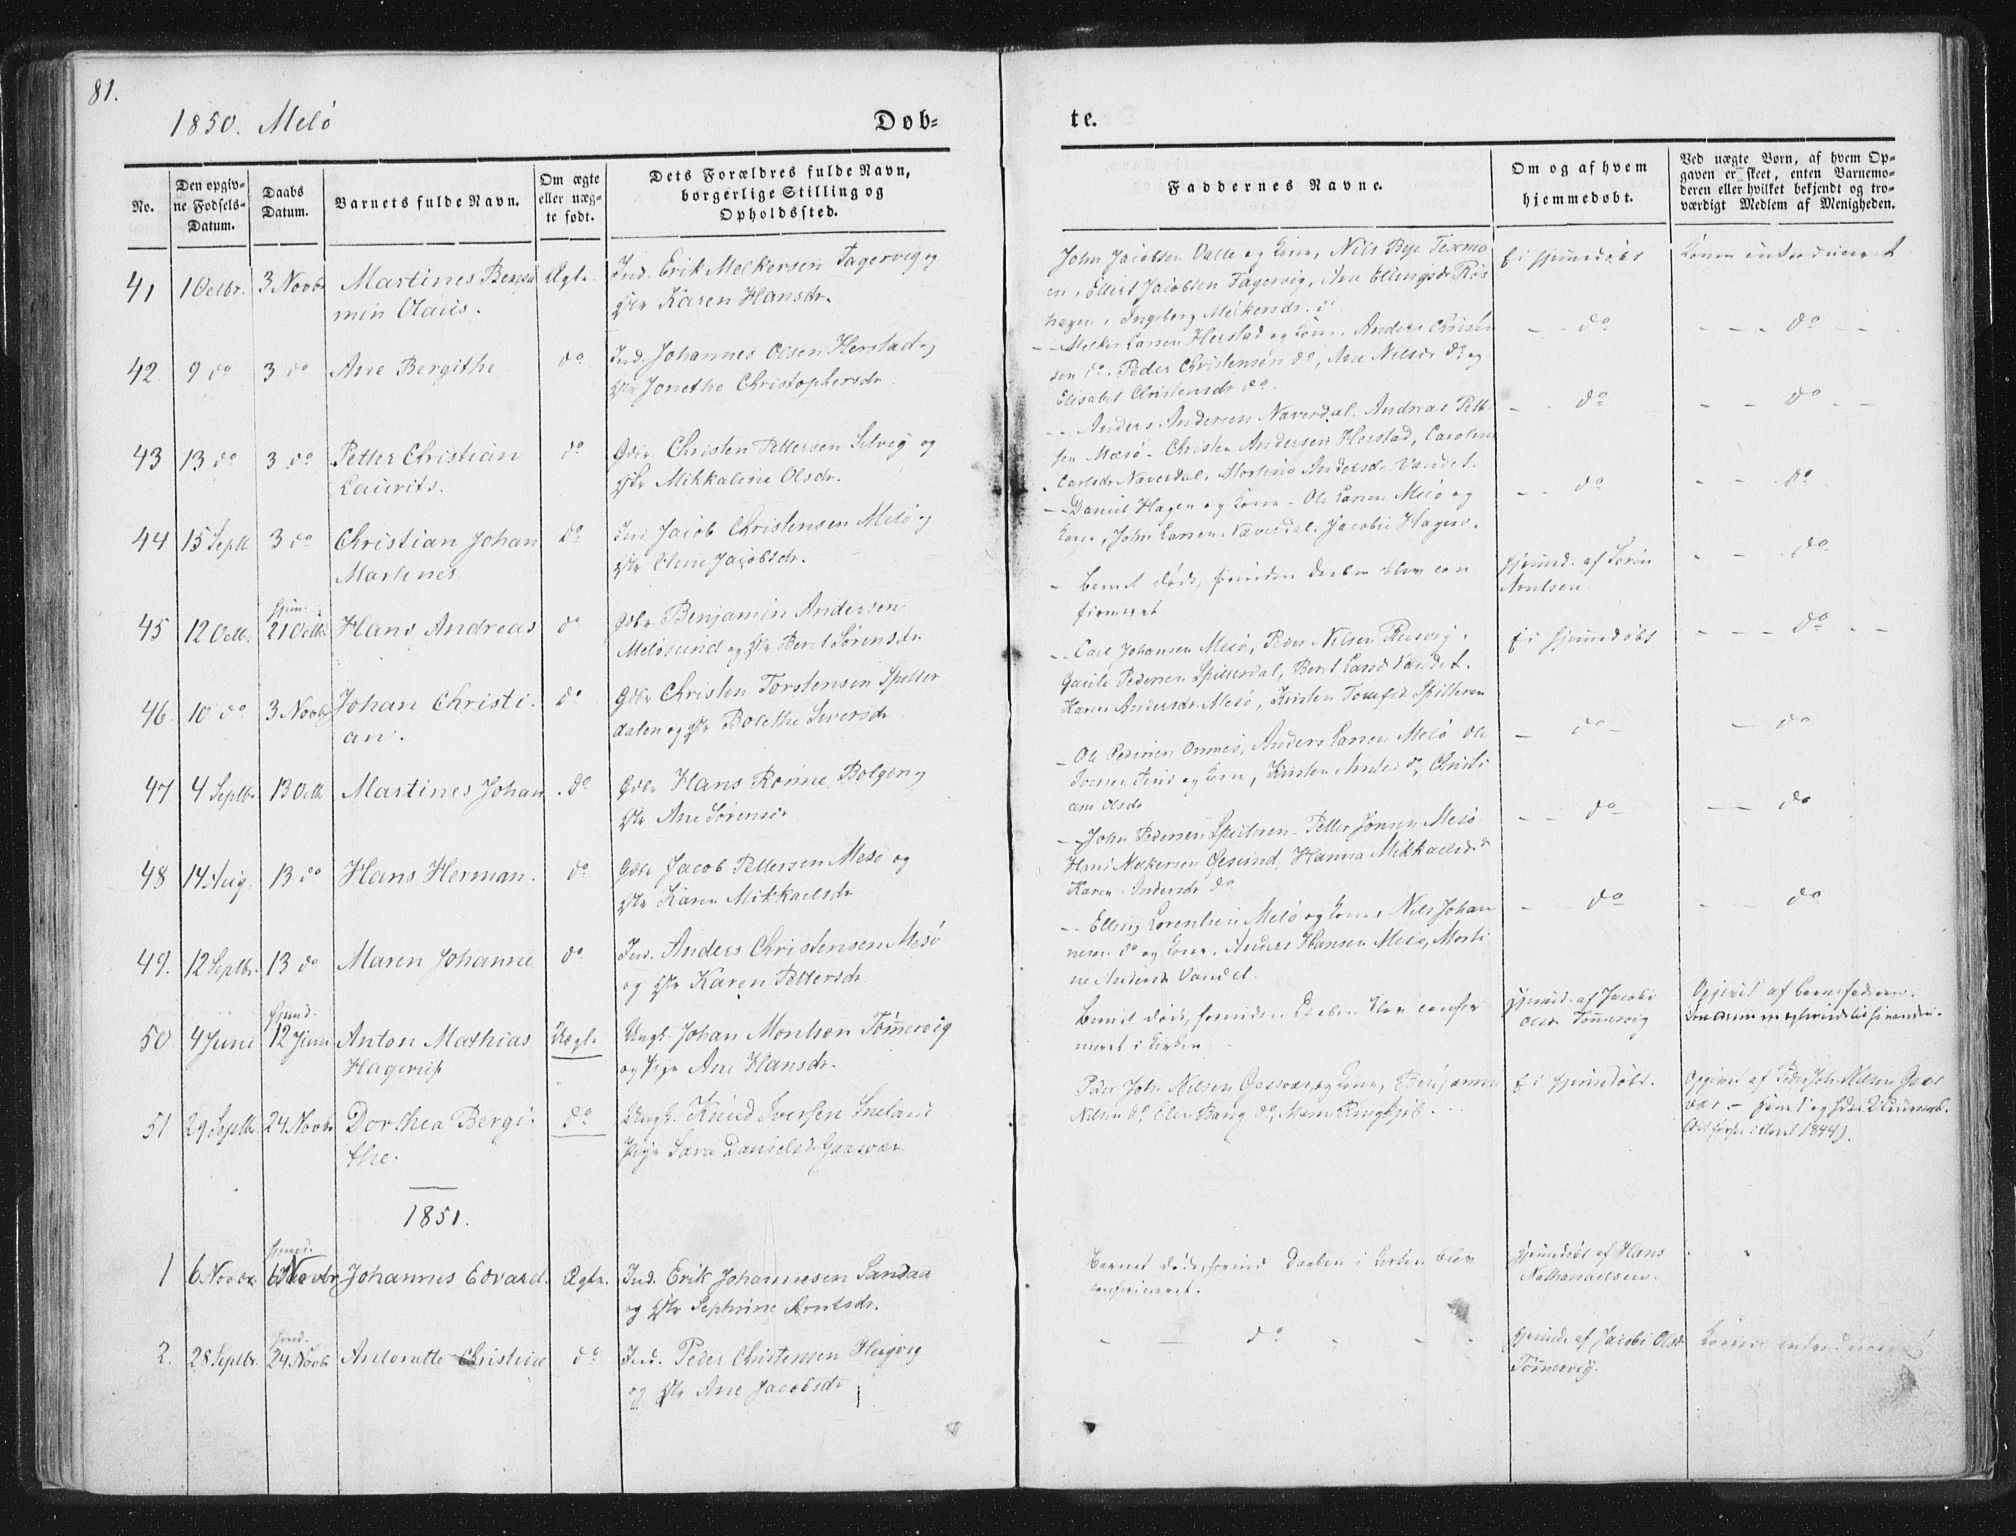 81.
1850. Melö
Dob-
te.
No.
Den opgiv-
ne Fødsels-
Datum.
Daabs
Datum.
Barnets fulde Navn.
Om ægte
eller uæg-
te født.
Dets Forældres fulde Navn,
borgerlige Stilling og
Opholdssted.
Faddernes Navne.
Om og af hvem
hjemmedøbt.
Ved uægte Børn, af hvem Op-
gaven er skeet, enten Barnemo-
deren eller hvilket bekjendt og tro-
værdigt Medlem af Menigheden.
41 1 Octbr. 3 Novbr Martines Benja Ægte Ind. Erik Melkersen Fagervig og
min Olaus. Karen Hansdr.
John Jacobsen Valle og Kone, Nils Bye
Ellert Jacobsen Fagervig, Ane Ellingsdr
hagen, Ingeborg Melkersdr. do
Ei hjemdøbt
Konen introduceret
42 9 do 3 do Ane Bergithe do Ind. Johannes Olsen Herstad og
Jonethe Christophersdr
Melker Larsen Herstad og Kone. Anders Christen
sen do. Peder Christensen do, Ane Nilsdr do og
Elisabet Christensdr do.
do
do
43 13 do 3 do Petter Christian do Gdbr Christen Pettersen Selvig og
Laurits. Mikkaline Olsdr.
Anders Andersen Næverdal. Andreas Petter
sen Mesø. Christen Andersen Herstad, Caroline
Carlsdr Næverdal, Martine Andersdr Vandet.
do
do
44 15 Septb 3 do Christian Johan do Ind Jacob Christensen Melö og
Martines. Oline Jacobsdr.
Daniel Hagen og Kone. Ole Larsen Melö og
Kone, John Larsen Næverdal. Jacobie Hagen.
do
do
45 12 Octb. hjem. 21 Octb Hans Andreas do Gdbr Benjamin Andersen
Melösund og Berit Sörensdr.
Barnet döde, forinden Daaben blev con
firmeret
hjemd. af Sören
Arntsen.
do
46. 10 do 3 Novb Johan Christi- do Gdbr Christen Torstensen Spilder
an. dalen og Bolethe Siversdr
Carl Johansen Mesö, Peder Nilsen Reisvig.
Pedersen Spilderdal, Berit Larsdr Vandet.
Karen Andersdr Mesö, Kirsten
Ei hjemdöbt
do
47 4 Septbr. 13 Octb Martines Johan do Gdbr Hans Rönne Bolgen og
Ane Sörensdr
Ole Pedersen Ornes, Anders Larsen Melö Ole
og Kone, Kirsten do, Christi
ane Olsdr
do
do
48 14 Aug. 13 do Hans Herman. do Gdbr Jacob Pettersen Mesö og
Karen Mikkaelsdr
John Pedersen Spilderen. Petter Jonsen Mesö
Hans Melkersen Öesund, Hanna Mikkaelsdr do
Karen Andersdr do
do
do
49. 12 Septbr. 13 do Maren Johanne do Ind. Anders Christensen Mesö
og Karen Pettersdr
Elling Lorentsen Melö og Kone, Nils Johan
nesen do og Kone. Anders Hansen Mesö, Marti
ne Andersdr Vandet.
do
do
50 4 Juni hjemd. 12 Juni Anton Mathias Uægte Ungk. Johan Montsen Tönnesvig
Hagerup og Pige Ane Hansdr.
Barnet döde, forinden Daaben blev confir
meret i Kirken.
hjemd. af Jacobi
Olsdr Tönnesvig
Opgivet af Barnefaderen.
51 29 Septbr. 24 Novbr Dorthea Bergi- do Ungk. Knud Iversen
the. Pige Sara Danielsd. Gaasvær
Peder Johs Nilsen Gaasvær og Kone, Benjamin
Nilsen do, Elen Bang do, Maren
Ei hjemdöbt.
Opgivet af Peder Joh. Nilsen Gaas
vær.
1844).
1851.
1 6 Novbr. hjemd. Novbr Johannes Edvard. Ægte. Ind. Erik Johannesen Sandaa
og Sephrine Arntsdr.
Barnet döde, forind Daaben i Kirken blev
confirmeret.
hjemdöbt af Hans
Nathanaelsen.
2. 28 Septbr. hjemd. 24 Novbr Antonette Christine do Ind. Peder Christensen Heigvig
og Ane Jacobsdr
do
hjemd. af Jacobi Olsdr
Tönnesvig.
Konen introduceret